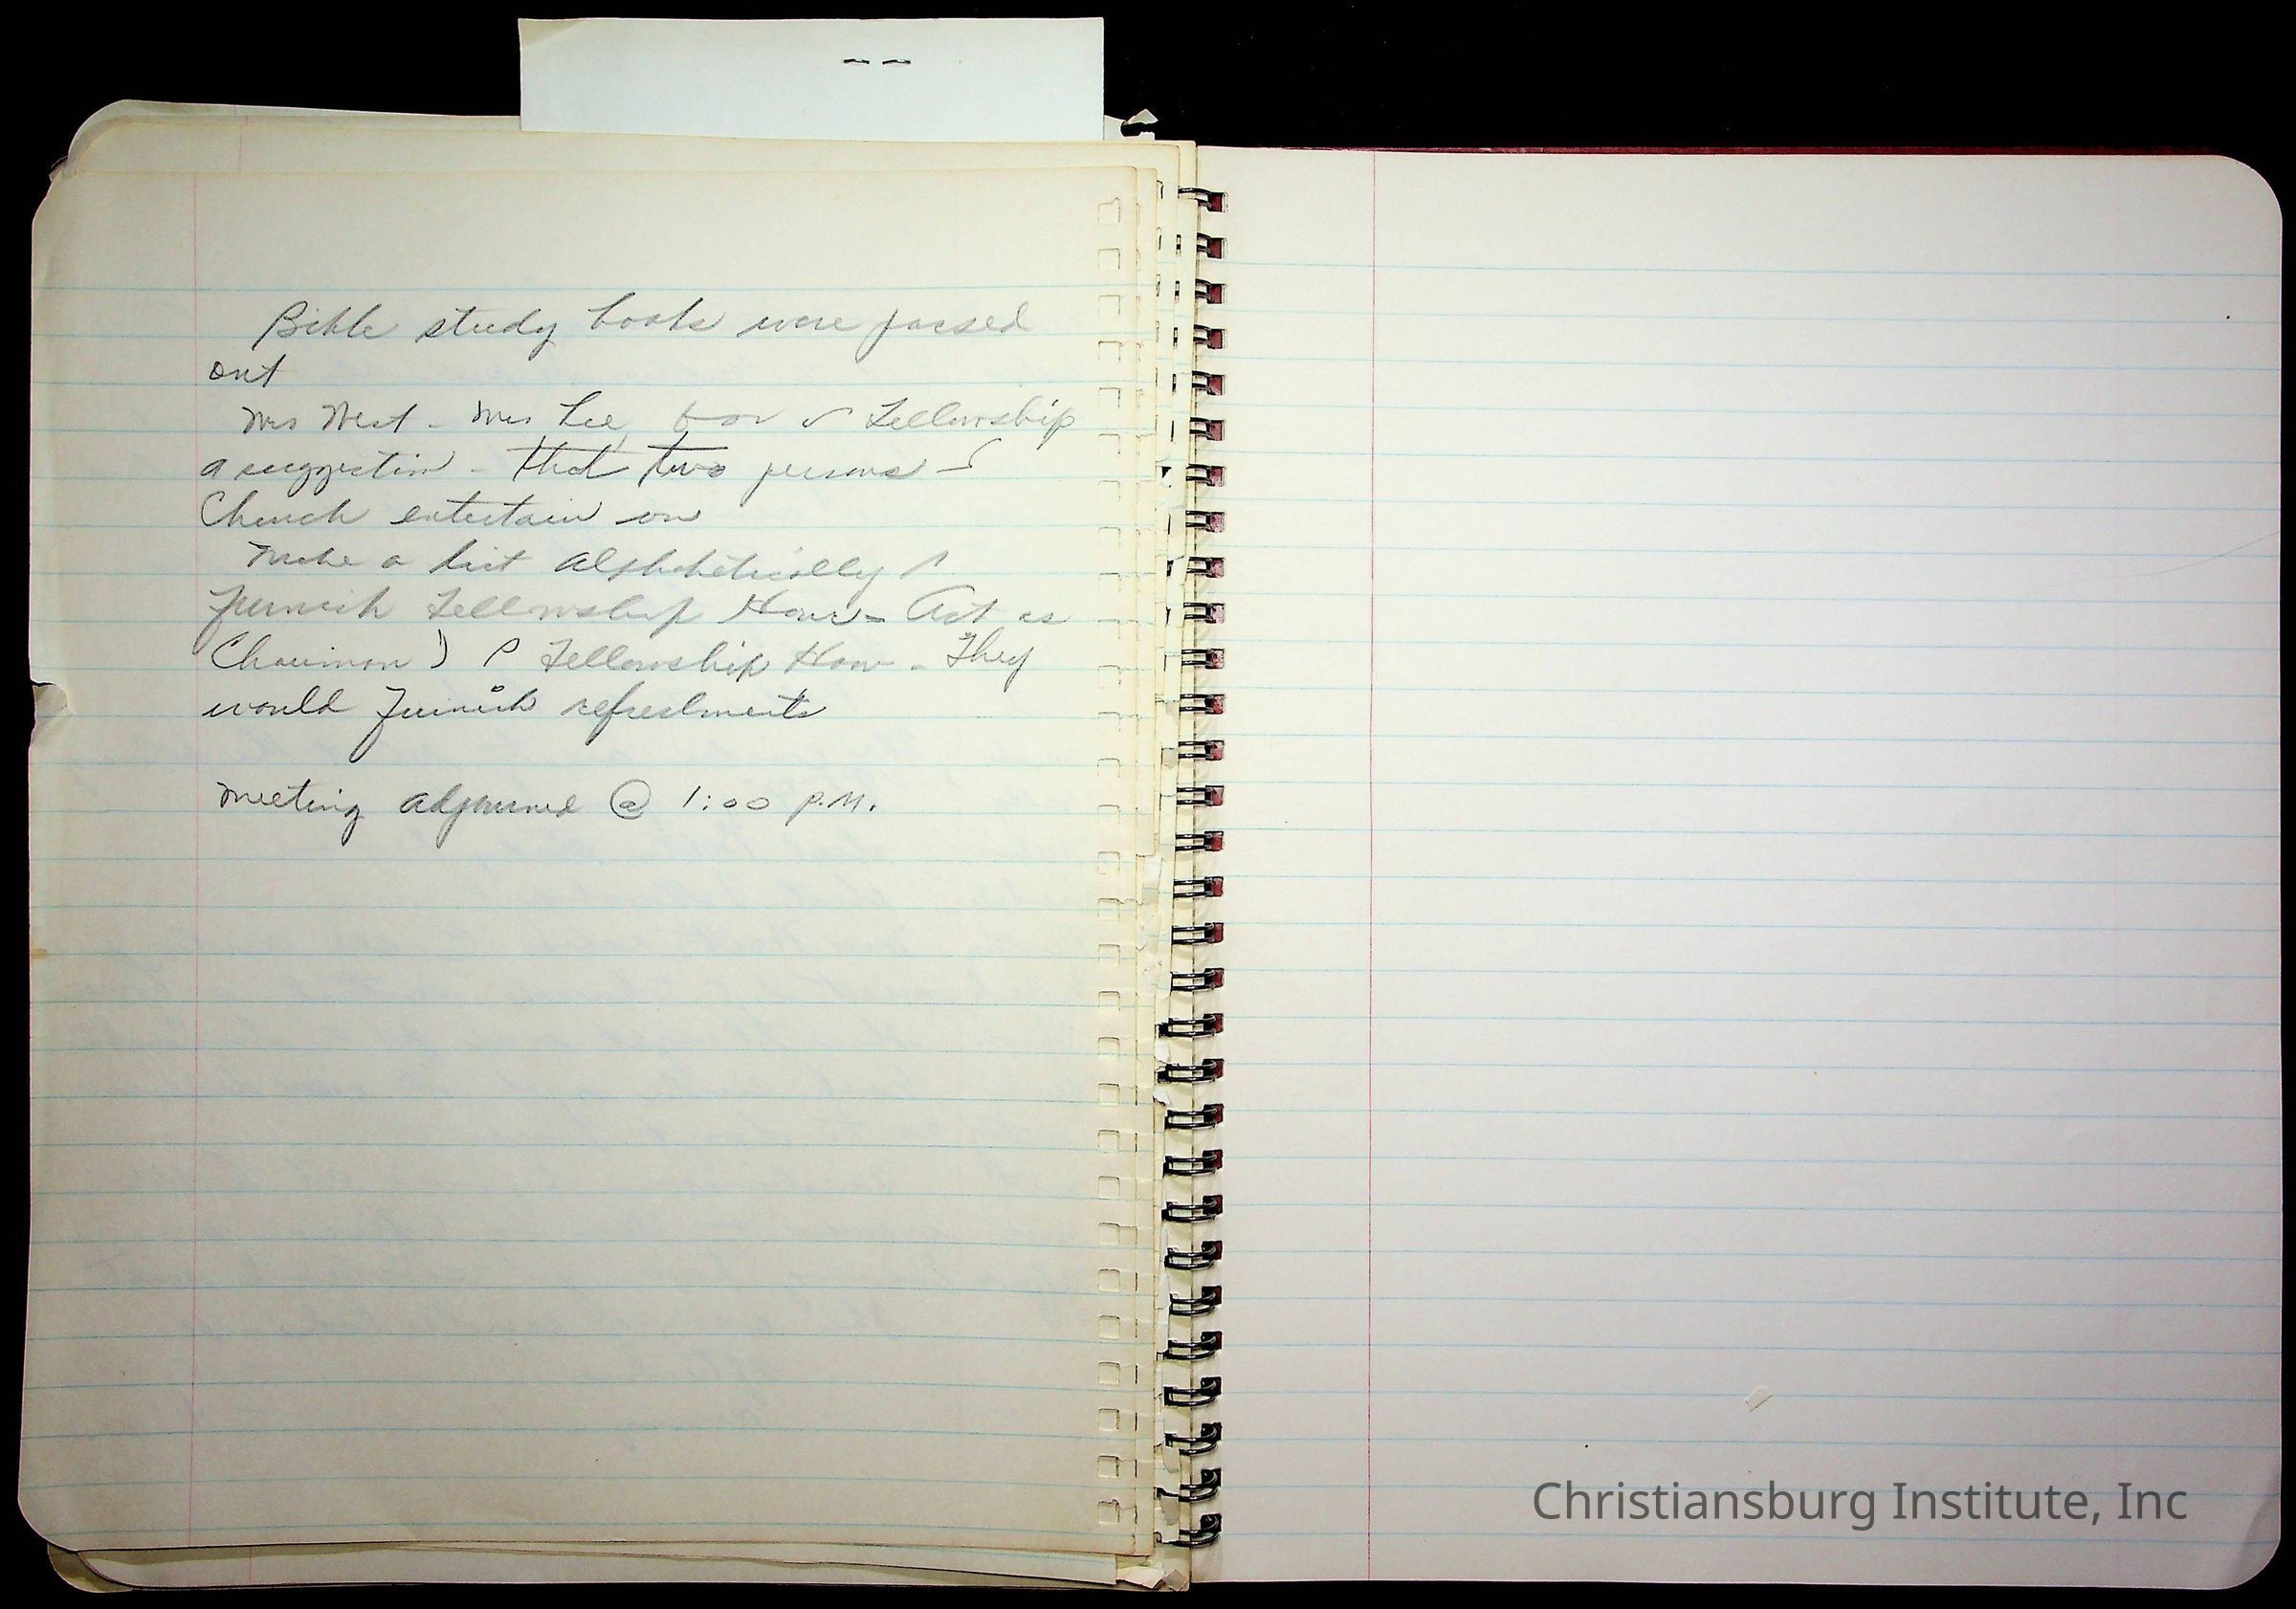 Bible study books were passed
out
Mrs West - Mrs Lee for Fellowship
a suggestion - that two persons
Church entertain on
Make a list alphabetically
furnish Fellowship Hour - Act as
Chairman) Fellowship Hour - They
would furnish refreshments
Meeting adjourned @ 1:00 P.M.
Christiansburg Institute, Inc